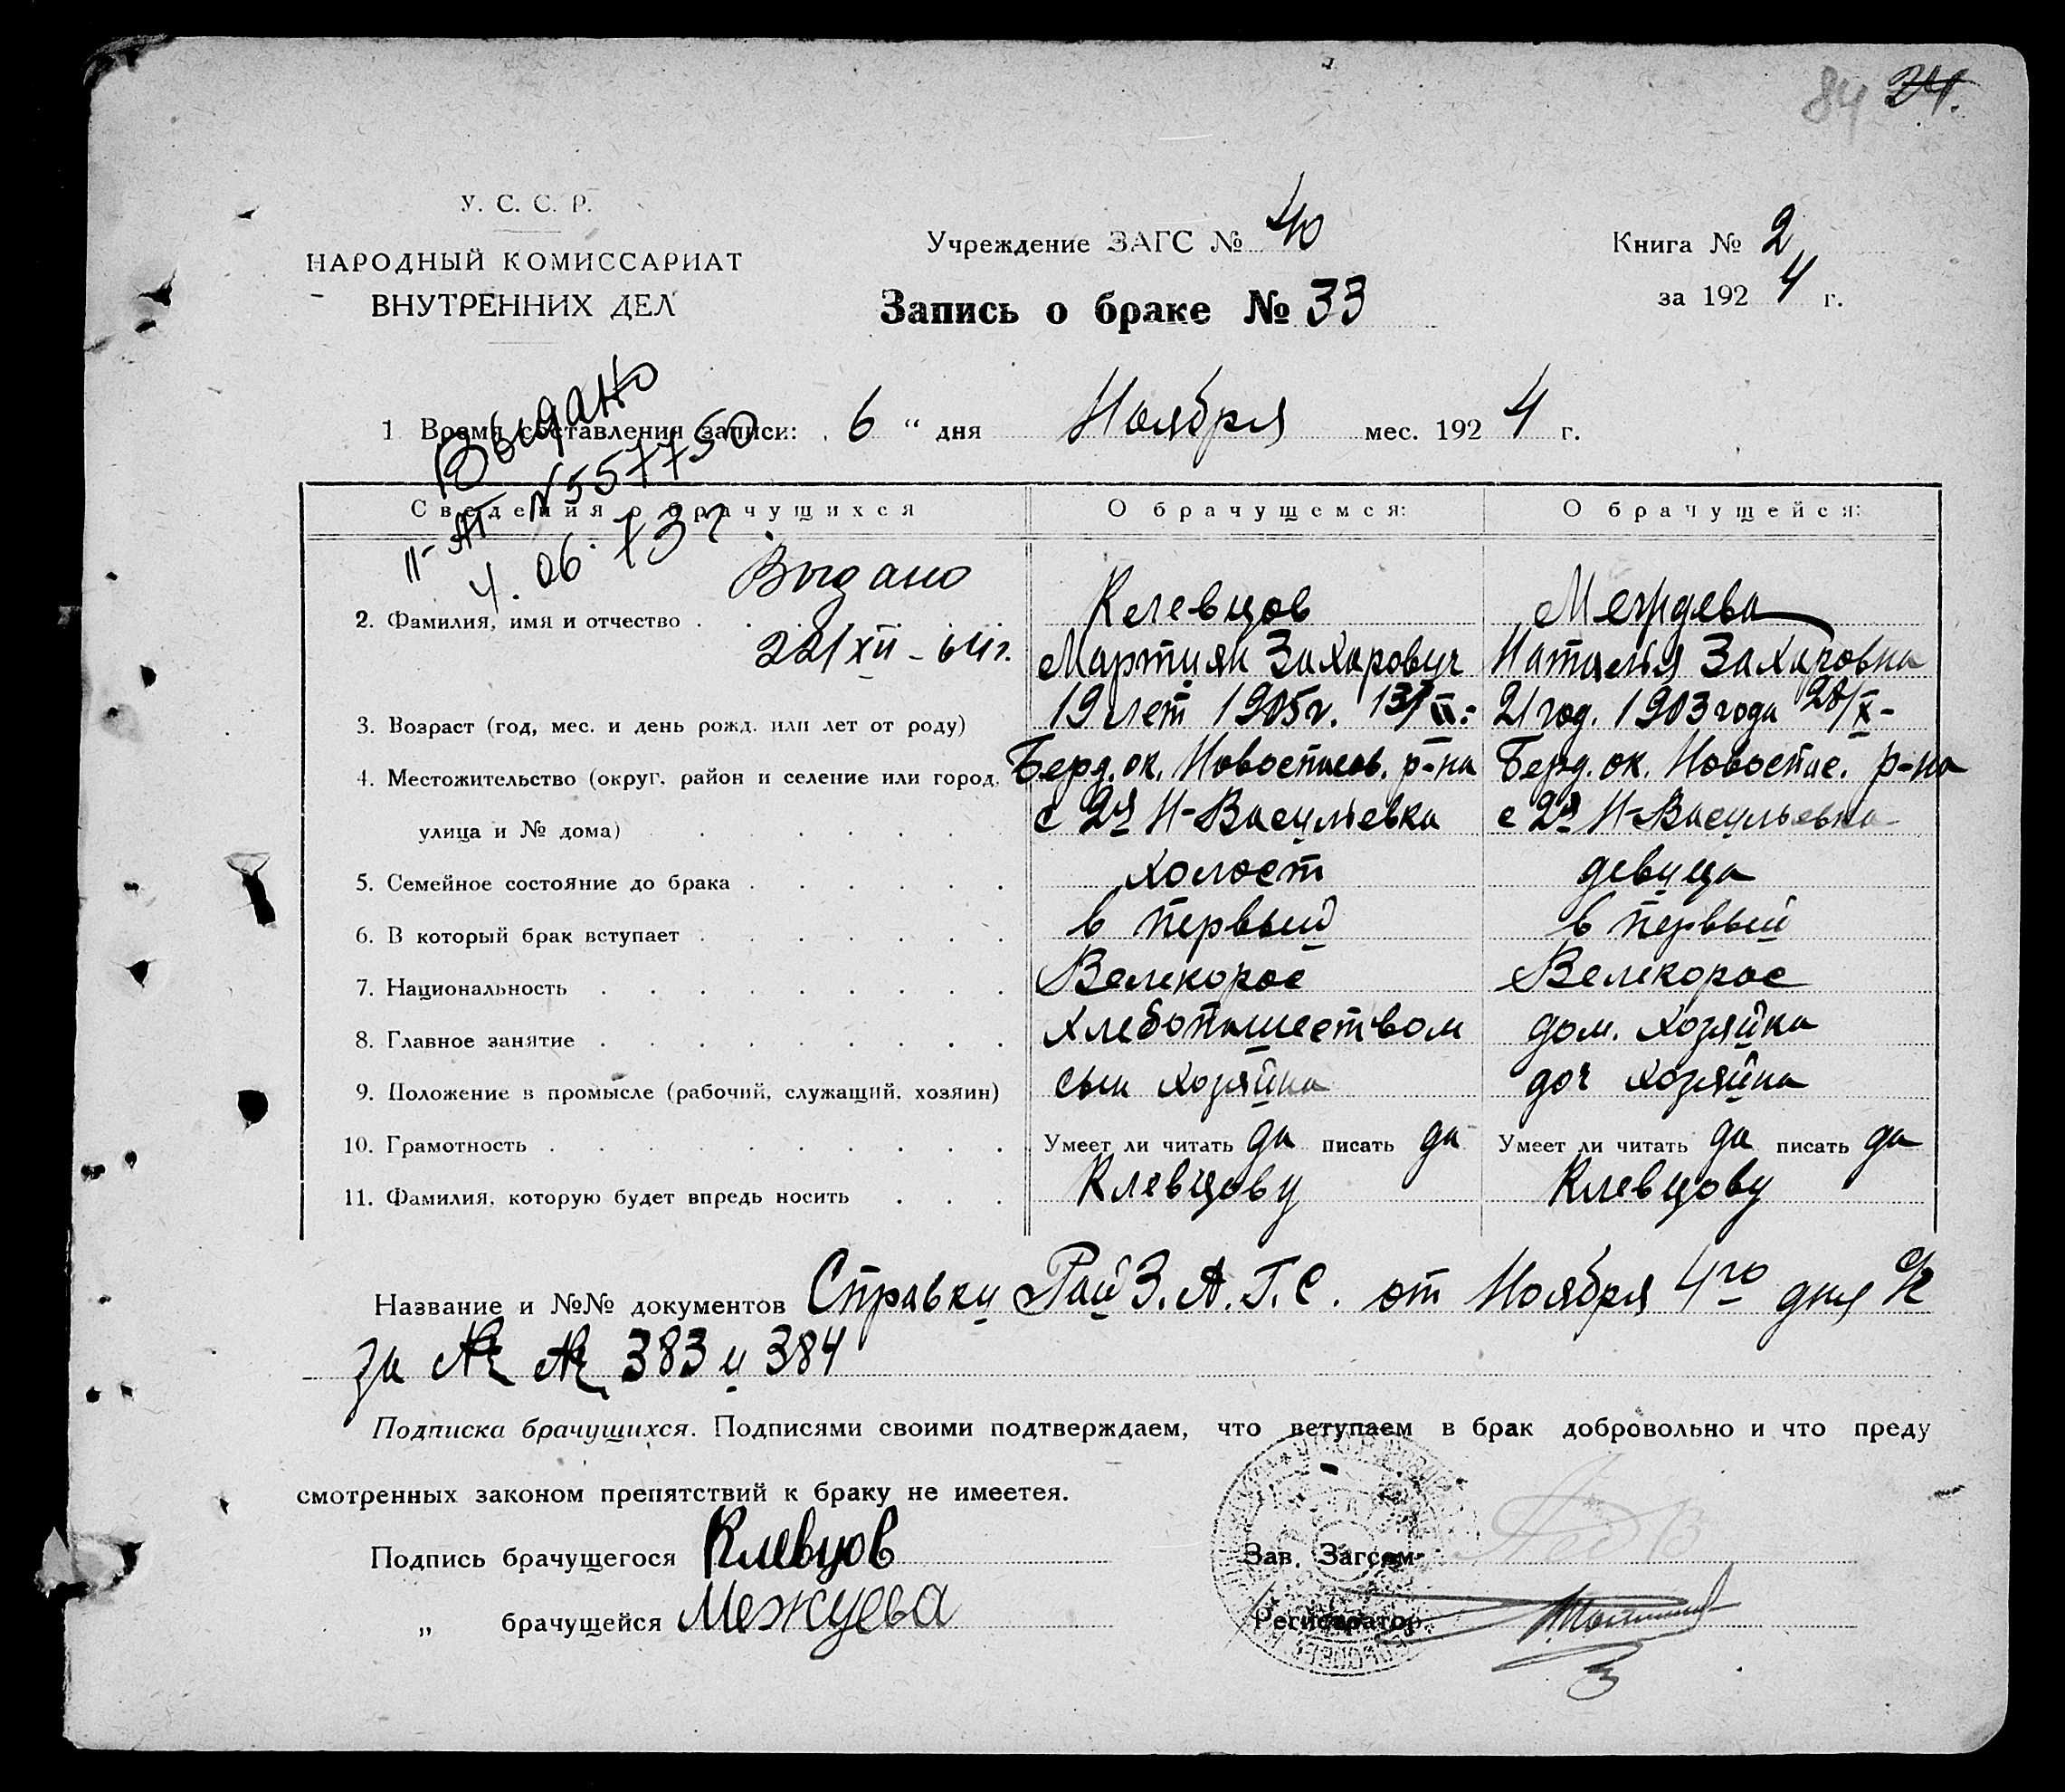 84 24.
У. С. С. Р.
НАРОДНЫЙ КОМИССАРИАТ
ВНУТРЕННИХ ДЕЛ
Учреждение ЗАГС № 40
Запись о браке № 33
Книга № 2
за 1924 г.
Выдано
II-АП №557750
4. 06. 73 г.
1 Время составления записи: 6 " дня Ноября мес. 1924 г.
Сведения о брачущихся О брачущемся: О брачущейся:
Выдано
22/XII - 64 г.
2. Фамилия, имя и отчество . Клевцов
Мартиян Захарович
Межуева
Наталья Захаровна
3. Возраст (год, мес. и день рожд. или лет от роду) 19 лет 1905 г. 21 год. 1903 года 28/X-
4. Местожительство (округ, район и селение или город, Берд. ок. Новоспасов. р-на Берд. ок. Новоспас. р-на
улица и № дома) с 2я Н-Васильевка с 2я Н-Васильевка
5. Семейное состояние до брака . холост девица
6. В который брак вступает . в первый в первый
7. Национальность . Великорос Великорос
8. Главное занятие . хлебопашеством дом. хозяйка
9. Положение в промысле (рабочий, служащий, хозяин) сын хозяина доч хозяина
10. Грамотность . Умеет ли читать да писать да Умеет ли читать да писать да
11. Фамилия, которую будет впредь носить . Клевцову Клевцову
Название и №№ документов Справки Рай З.А.Г.С. от Ноября 4го дня с/г
за № № 383 и 384
Подписка брачущихся. Подписями своими подтверждаем, что вступаем в брак добровольно и что преду
смотренных законом препятствий к браку не имеется.
Подпись брачущегося Клевцов
Зав. Загсом
„ брачущейся Межуева
Регистратор